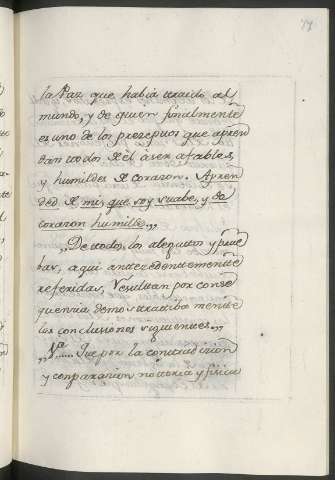 77.
la Paz que había traido al
mundo, y de quien finalmente
es uno de los preceptos que apren
dan todos de el á ser afables,
y humildes de corazon. Apren
ded de mi, que soy suabe, y de
corazon humilde.,,
,,De todos los alegatos y prue
bas, aqui antecedentemente
referidas, Resultan por conse
quencia demostratiba mente
las conclusiones siguientes.,,
,,1ª...... Que por la contradicion
y comparacion notoria y fisica